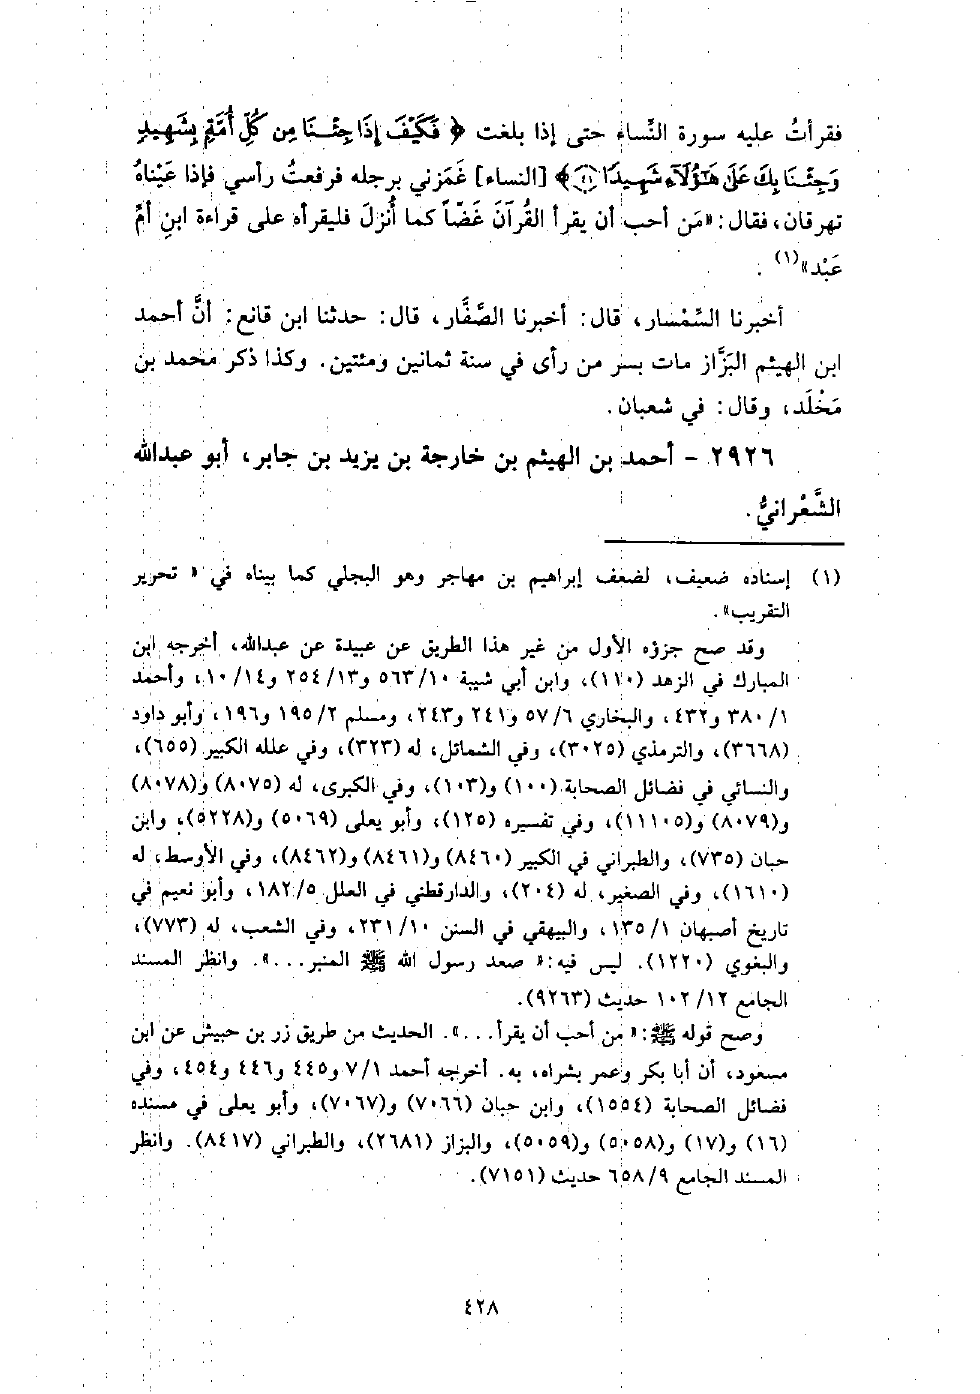 فقرأتُ عليه سورة النِّساء حتى إذا بلغت ﴿ فَكَيْفَ إِذَا جِئْنَا مِن كُلِّ أُمَّةٍ بِشَهِيدٍ
وَجِئْنَا بِكَ عَلَىٰ هَٰٓؤُلَآءِ شَهِيدًا ﴿٤١﴾ ﴾ [النساء] غَمَزني برجله فرفعتُ رأسي فإذا عَيْناهُ
تهرقان، فقال: «مَن أحب أن يقرأ القُرآنَ غَضّاً كما أُنزلَ فليقرأه على قراءة ابنِ أمِّ
عَبْد»(١) .
أخبرنا السِّمْسار، قال: أخبرنا الصَّفَّار، قال: حدثنا ابن قانع: أنَّ أحمد
ابن الهيثم البَزَّاز مات بسر من رأى في سنة ثمانين ومئتين. وكذا ذكر محمد بن
مَخْلَد، وقال: في شعبان.
٢٩٢٦ - أحمد بن الهيثم بن خارجة بن يزيد بن جابر، أبو عبدالله
الشَّعْرانيُّ.
(١) إسناده ضعيف، لضعف إبراهيم بن مهاجر وهو البجلي كما بيناه في « تحرير
التقريب».
وقد صح جزؤه الأول من غير هذا الطريق عن عبيدة عن عبدالله، أخرجه ابن
المبارك في الزهد (١١٠)، وابن أبي شيبة ١٠/ ٥٦٣ و١٣/ ٢٥٤ و١٤/ ١٠، وأحمد
١/ ٣٨٠ و٤٣٢، والبخاري ٦/ ٥٧ و٢٤١ و٢٤٣، ومسلم ٢/ ١٩٥ و١٩٦، وأبو داود
(٣٦٦٨)، والترمذي (٣٠٢٥)، وفي الشمائل، له (٣٢٣)، وفي علله الكبير (٦٥٥)،
والنسائي في فضائل الصحابة (١٠٠) و(١٠٣)، وفي الكبرى، له (٨٠٧٥) و(٨٠٧٨)
و(٨٠٧٩) و(١١١٠٥)، وفي تفسيره (١٢٥)، وأبو يعلى (٥٠٦٩) و(٥٢٢٨)، وابن
حبان (٧٣٥)، والطبراني في الكبير (٨٤٦٠) و(٨٤٦١) و(٨٤٦٢)، وفي الأوسط، له
(١٦١٠)، وفي الصغير، له (٢٠٤)، والدارقطني في العلل ٥/ ١٨٢، وأبو نعيم في
تاريخ أصبهان ١/ ١٣٥، والبيهقي في السنن ١٠/ ٢٣١، وفي الشعب، له (٧٧٣)،
والبغوي (١٢٢٠). ليس فيه: « صعد رسول الله ﷺ المنبر...». وانظر المسند
الجامع ١٢/ ١٠٢ حديث (٩٢٦٣).
وصح قوله ﷺ: « من أحب أن يقرأ...». الحديث من طريق زر بن حبيش عن ابن
مسعود، أن أبا بكر وعمر بشراه، به. أخرجه أحمد ١/ ٧ و٤٤٥ و٤٤٦ و٤٥٤، وفي
فضائل الصحابة (١٥٥٤)، وابن حبان (٧٠٦٦) و(٧٠٦٧)، وأبو يعلى في مسنده
(١٦) و(١٧) و(٥٠٥٨) و(٥٠٥٩)، والبزاز (٢٦٨١)، والطبراني (٨٤١٧). وانظر
المسند الجامع ٩/ ٦٥٨ حديث (٧١٥١).
٤٢٨